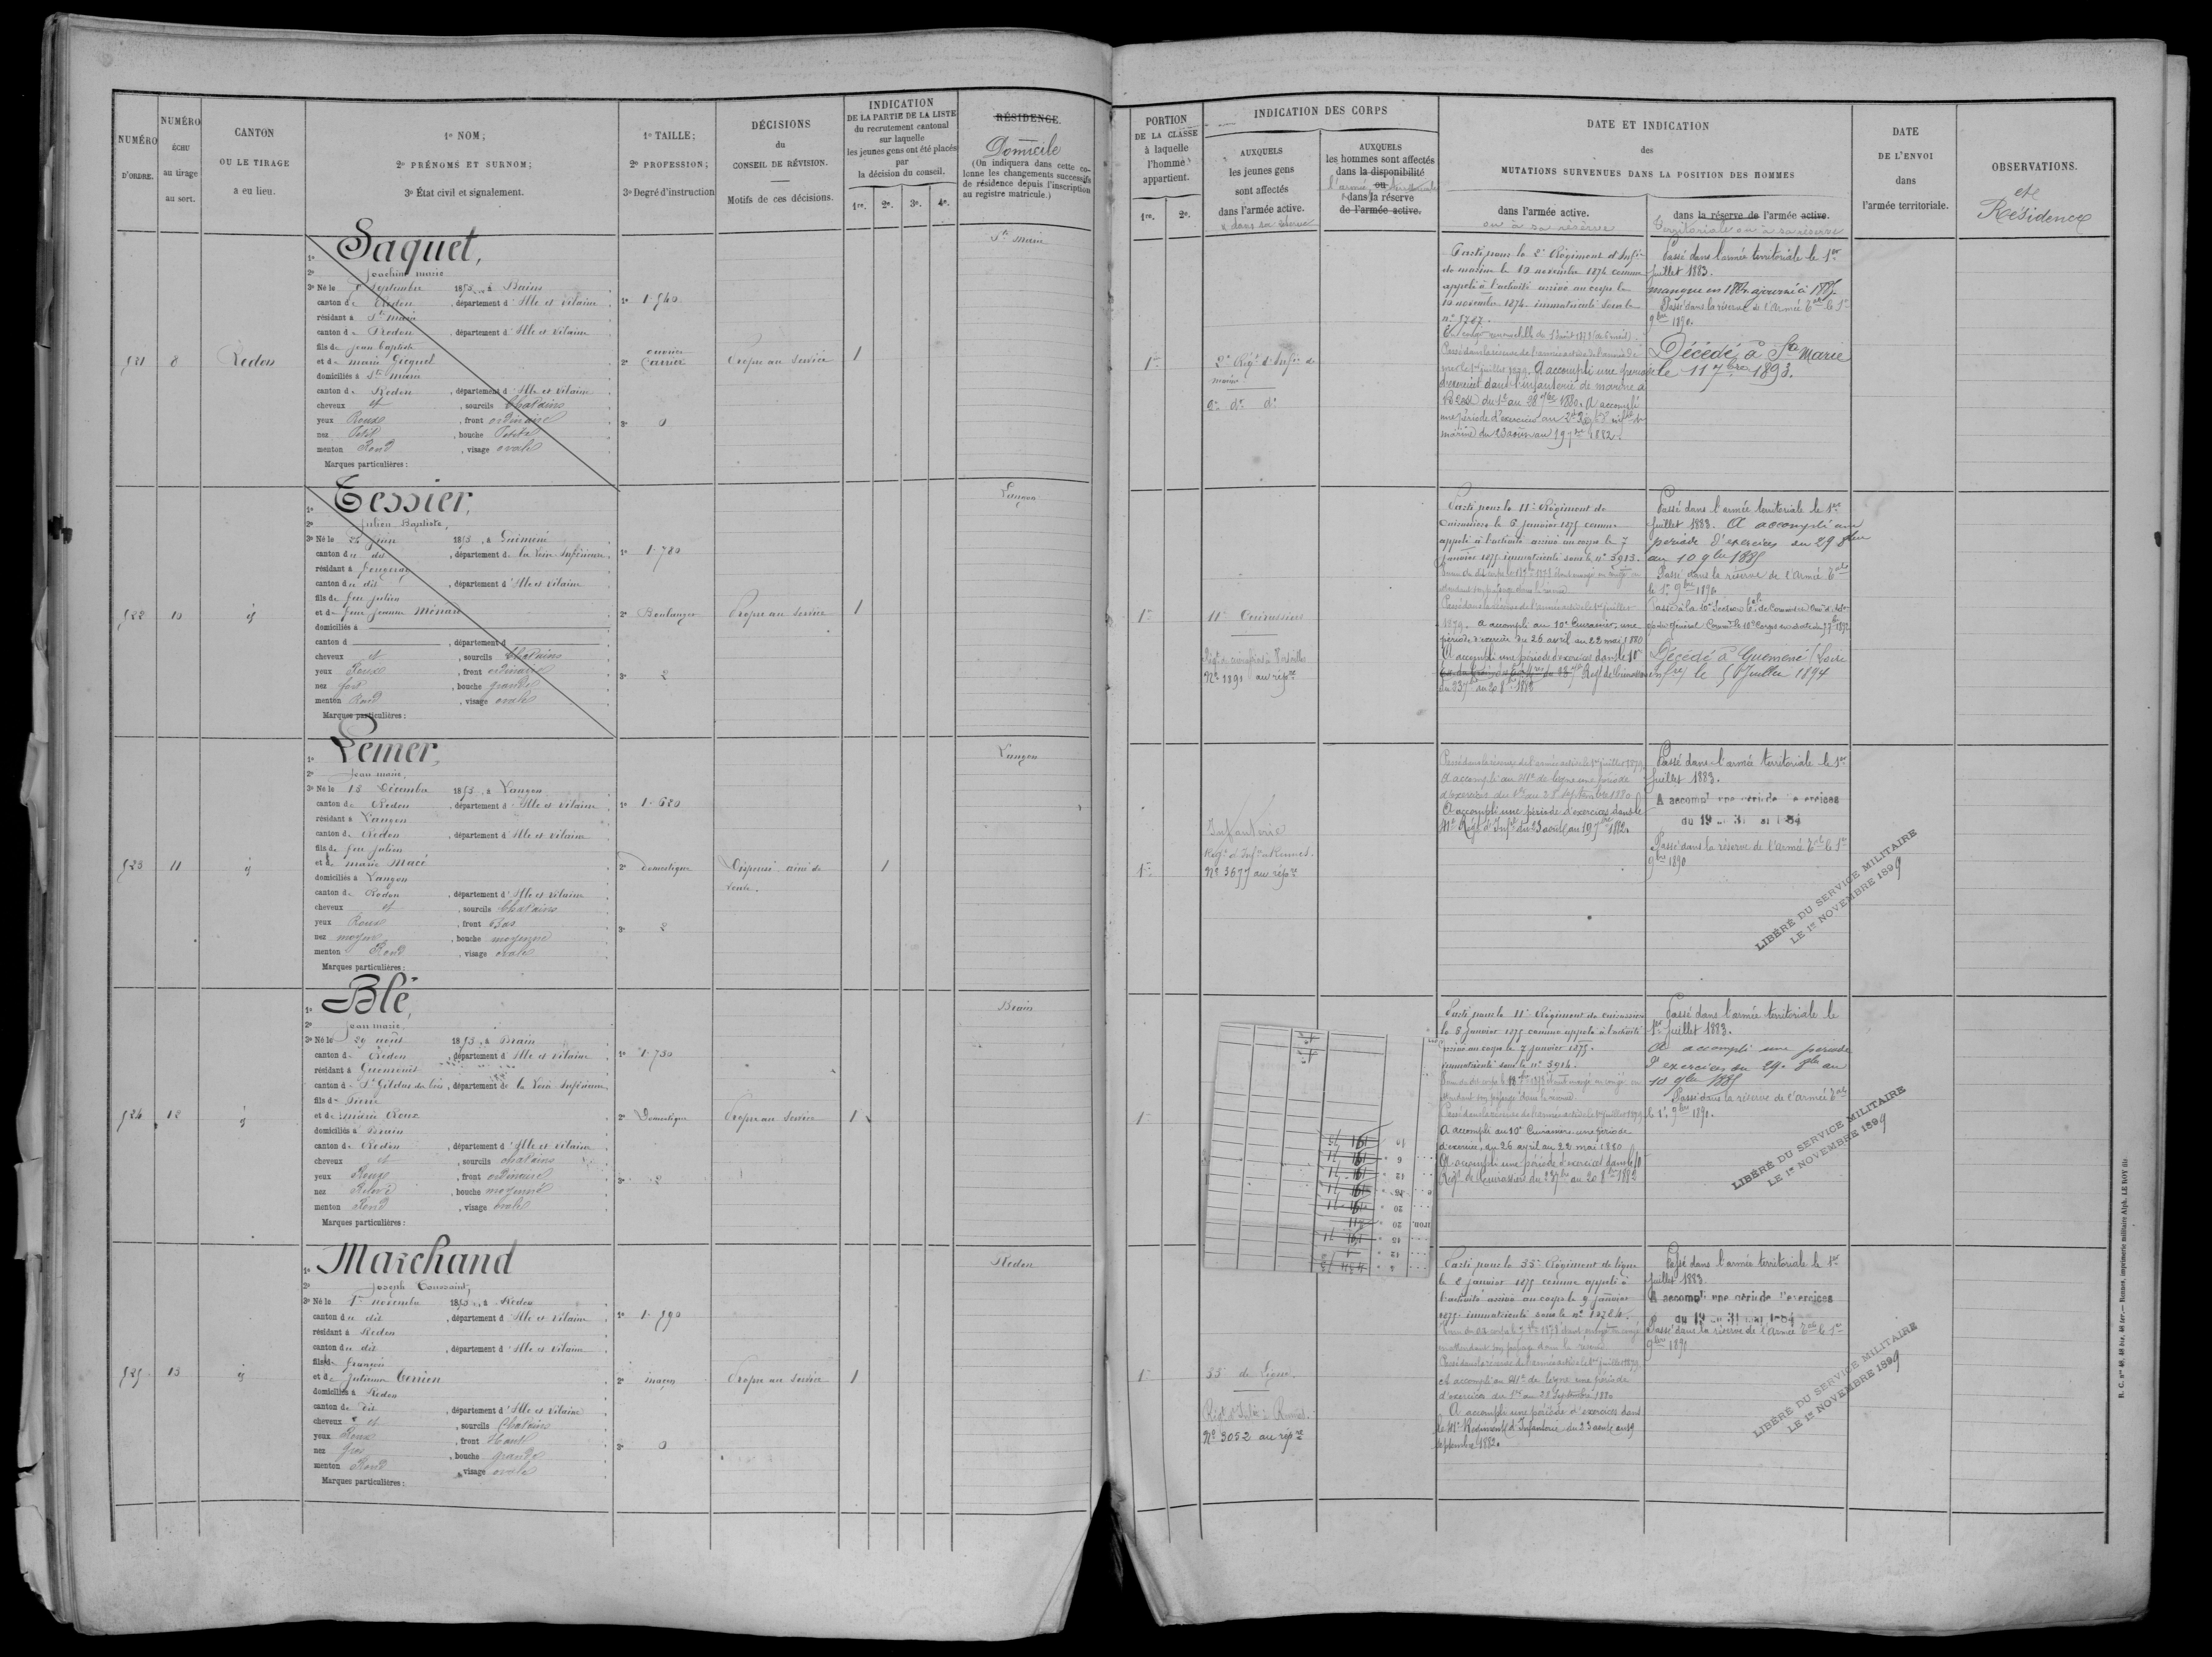 NUMÉRO
D'ORDRE.
NUMÉRO
ÉCHU
au tirage
au sort.
CANTON
OU LE TIRAGE
a eu lieu.
1º NOM;
2º PRÉNOMS ET SURNOM;
3º État civil et signalement.
1º TAILLE;
2º PROFESSION;
3º Degré d'instruction
DÉCISIONS
du
CONSEIL DE RÉVISION.
Motifs de ces décisions.
INDICATION
DE LA PARTIE DE LA LISTE
du recrutement cantonal
sur laquelle
les jeunes gens ont été placés
par
la décision du conseil.
1re. 2e. 3e. 4e.
RÉSIDENCE.
Domicile
(On indiquera dans cette co-
lonne les changements successifs
de résidence depuis l'inscription
au registre matricule.)
PORTION
DE LA CLASSE
à laquelle
l'homme
appartient.
1re. 2e.
INDICATION DES CORPS
AUXQUELS
les jeunes gens
sont affectés
dans l'armée active.
& dans sa réserve
AUXQUELS
les hommes sont affectés
dans la disponibilité
ou
l'armée territoriale
dans la réserve
de l'armée active.
DATE ET INDICATION
des
MUTATIONS SURVENUES DANS LA POSITION DES HOMMES
dans l'armée active.
ou à sa réserve
dans la réserve de l'armée active.
Territoriale ou à sa réserve
DATE
DE L'ENVOI
dans
l'armée territoriale.
OBSERVATIONS.
et
Résidence
521 8 Redon
1º Saquet,
2º Joachim marie
3º Né le 8 Septembre 1853, à Bains
canton de Redon, département d'Ille et Vilaine
résidant à Ste marie
canton de Redon, département d'Ille et Vilaine
fils de jean baptiste
et de marie Gicquel
domiciliés à Ste marie
canton de Redon, département d'Ille et Vilaine
cheveux et, sourcils Chatains
yeux Roux, front ordinaire
nez Petit, bouche Petite
menton Rond, visage ovale
Marques particulières:
1º 1.540
2º ouvrier
Carrier
3º 0
Propre au Service
1
Ste marie
1re
2e Régt d'Infie de
marine
2e do do
Parti pour le 2e Régiment d'Infie
de marine le 19 novembre 1874 comme
appelé à l'activité arrivé au corps le
19 novembre 1874. immatriculé sous le
nº 5767.
Passé dans la réserve de l'armée active
1er juillet 1879. A accompli une période
d'exercices dans l'infanterie de marine à
Brest du 1er au 28 7bre 1880. A accompli
une période d'exercices au 2e Régt d'infie de
marine du 23 août au 19 7bre 1882.
Passé dans l'armée territoriale le 1er
juillet 1883.
manque en 1884 ajourné à 1885.
Passé dans la réserve de l'Armée Tale le 1er
9bre 1890.
Décédé à Ste Marie
le 11 7bre 1893.
522 10 id
1º Tessier,
2º Julien Baptiste,
3º Né le 22 juin 1853, à Guémené
canton du dit, département de la Loire Inférieure
résidant à fougeray
canton du dit, département d'Ille et Vilaine
fils de feu julien
et de feue jeanne Ménard
domiciliés à
canton d , département d
cheveux et, sourcils Chatains
yeux Roux, front ordinaire
nez fort, bouche grande
menton Rond, visage ovale
Marques particulières:
1º 1.780
2º Boulanger
3º 2
Propre au Service
1
Langon
1re
11e Cuirassiers
Nº 1891 au répre
Parti pour le 11e Régiment de
Cuirassiers le 6 janvier 1875 comme
appelé à l'activité arrivé au corps le 7
janvier 1875 immatriculé sous le nº 3913.
Passé dans la réserve de l'armée active le 1er juillet
1879. A accompli au 10e Cuirassier, une
période d'exercices du 26 avril au 22 mai 1880
A accompli une période d'exercices dans le 10e
Régt de Cuirassiers
du 23 7bre au 20 8bre 1882
Passé dans l'armée territoriale le 1er
juillet 1883. A accompli une
période d'exercices du 29 8bre
au 10 9bre 1885
Passé dans la réserve de l'Armée Tale
le 1er 9bre 1890
Décédé à Guémené (Loire
infre) le 5 Juillet 1894
523 11 id
1º Lemer,
2º Jean marie,
3º Né le 13 Décembre 1853, à Langon
canton de Redon, département d'Ille et Vilaine
résidant à Langon
canton de Redon, département d'Ille et Vilaine
fils de feu julien
et de marie Macé
domiciliés à Langon
canton de Redon, département d'Ille et Vilaine
cheveux et, sourcils Chatains
yeux Roux, front Bas
nez moyen, bouche moyenne
menton Rond, visage ovale
Marques particulières:
1º 1.620
2º domestique
3º 2
Dispensé aîné de
veuve.
1
Langon
1re
Infanterie
Régt d'Infie Rennes.
Nº 3677 au répre
Passé dans la réserve de l'armée active le 1er juillet 1879
A accompli au 41e de ligne une période
d'exercices du 1er au 28 septembre 1880
A accompli une période d'exercices dans le
41e Régt d'Infie du 23 août au 19 7bre 1882.
Passé dans l'armée territoriale le 1er
juillet 1883.
A accompli une période d'exercices
du 19 au 31 mai 1884
Passé dans la réserve de l'Armée Tale le 1er
9bre 1890
LIBÉRÉ DU SERVICE MILITAIRE
LE 1er NOVEMBRE 1899
524 12 id
1º Blé,
2º Jean marie,
3º Né le 29 août 1853, à Brain
canton de Redon, département d'Ille et Vilaine
résidant à Guenrouët
canton de St Gildas des bois, département de la Loire Inférieure
fils de Pierre
et de marie Roux
domiciliés à Brain
canton de Redon, département d'Ille et Vilaine
cheveux et, sourcils chatains
yeux Roux, front ordinaire
nez Relevé, bouche moyenne
menton Rond, visage ovale
Marques particulières:
1º 1.750
2º Domestique
3º 2
Propre au Service
1
Brain
1re
Parti pour le 11e Régiment de cuirassiers
le 6 janvier 1875 comme appelé à l'activité
arrivé au corps le 7 janvier 1875.
immatriculé sous le nº 3914.
Passé dans la réserve de l'armée active le 1er juillet 1879
A accompli au 10e Cuirassiers une période
d'exercices, du 26 avril au 22 mai 1880
A accompli une période d'exercices dans le 10
Régt de Cuirassiers du 23 7bre au 20 8bre 1882
Passé dans l'armée territoriale le
1er juillet 1883.
A accompli une période
d'exercices du 29 8bre au
10 9bre 1885
Passé dans la réserve de l'armée Tale
le 1er 9bre 1890.
LIBÉRÉ DU SERVICE MILITAIRE
LE 1er NOVEMBRE 1899
525 13 id
1º Marchand
2º Joseph Toussaint,
3º Né le 1er novembre 1853, à Redon
canton du dit, département d'Ille et Vilaine
résidant à Redon
canton du dit, département d'Ille et Vilaine
fils de françois
et de Julienne Terrien
domiciliés à Redon
canton du dit, département d'Ille et Vilaine
cheveux et, sourcils Chatains
yeux Roux, front Haut
nez Gros, bouche grande
menton Rond, visage ovale
Marques particulières:
1º 1.590
2º maçon
3º 0
Propre au Service
1
Redon
1re
35e de Ligne.
Régt d'Infie à Rennes.
Nº 3052 au répre
Parti pour le 35e Régiment de ligne
le 2 janvier 1875 comme appelé à
l'activité arrivé au corps le 9 janvier
1875 immatriculé sous le nº 10724.
Passé dans la réserve de l'armée active le 1er juillet 1879
A accompli au 41e de ligne une période
d'exercices du 1er au 28 Septembre 1880
A accompli une période d'exercices dans
le 41e Régiment d'Infanterie du 23 août au 19
septembre 1882.
Passé dans l'armée territoriale le 1er
juillet 1883
A accompli une période d'exercices
du 19 au 31 mai 1884
Passé dans la réserve de l'Armée Tale le 1er
9bre 1890
LIBÉRÉ DU SERVICE MILITAIRE
LE 1er NOVEMBRE 1899
R. C. nos 48, 48 bis, 48 ter. — Rennes, imprimerie militaire Alph. LE ROY fils